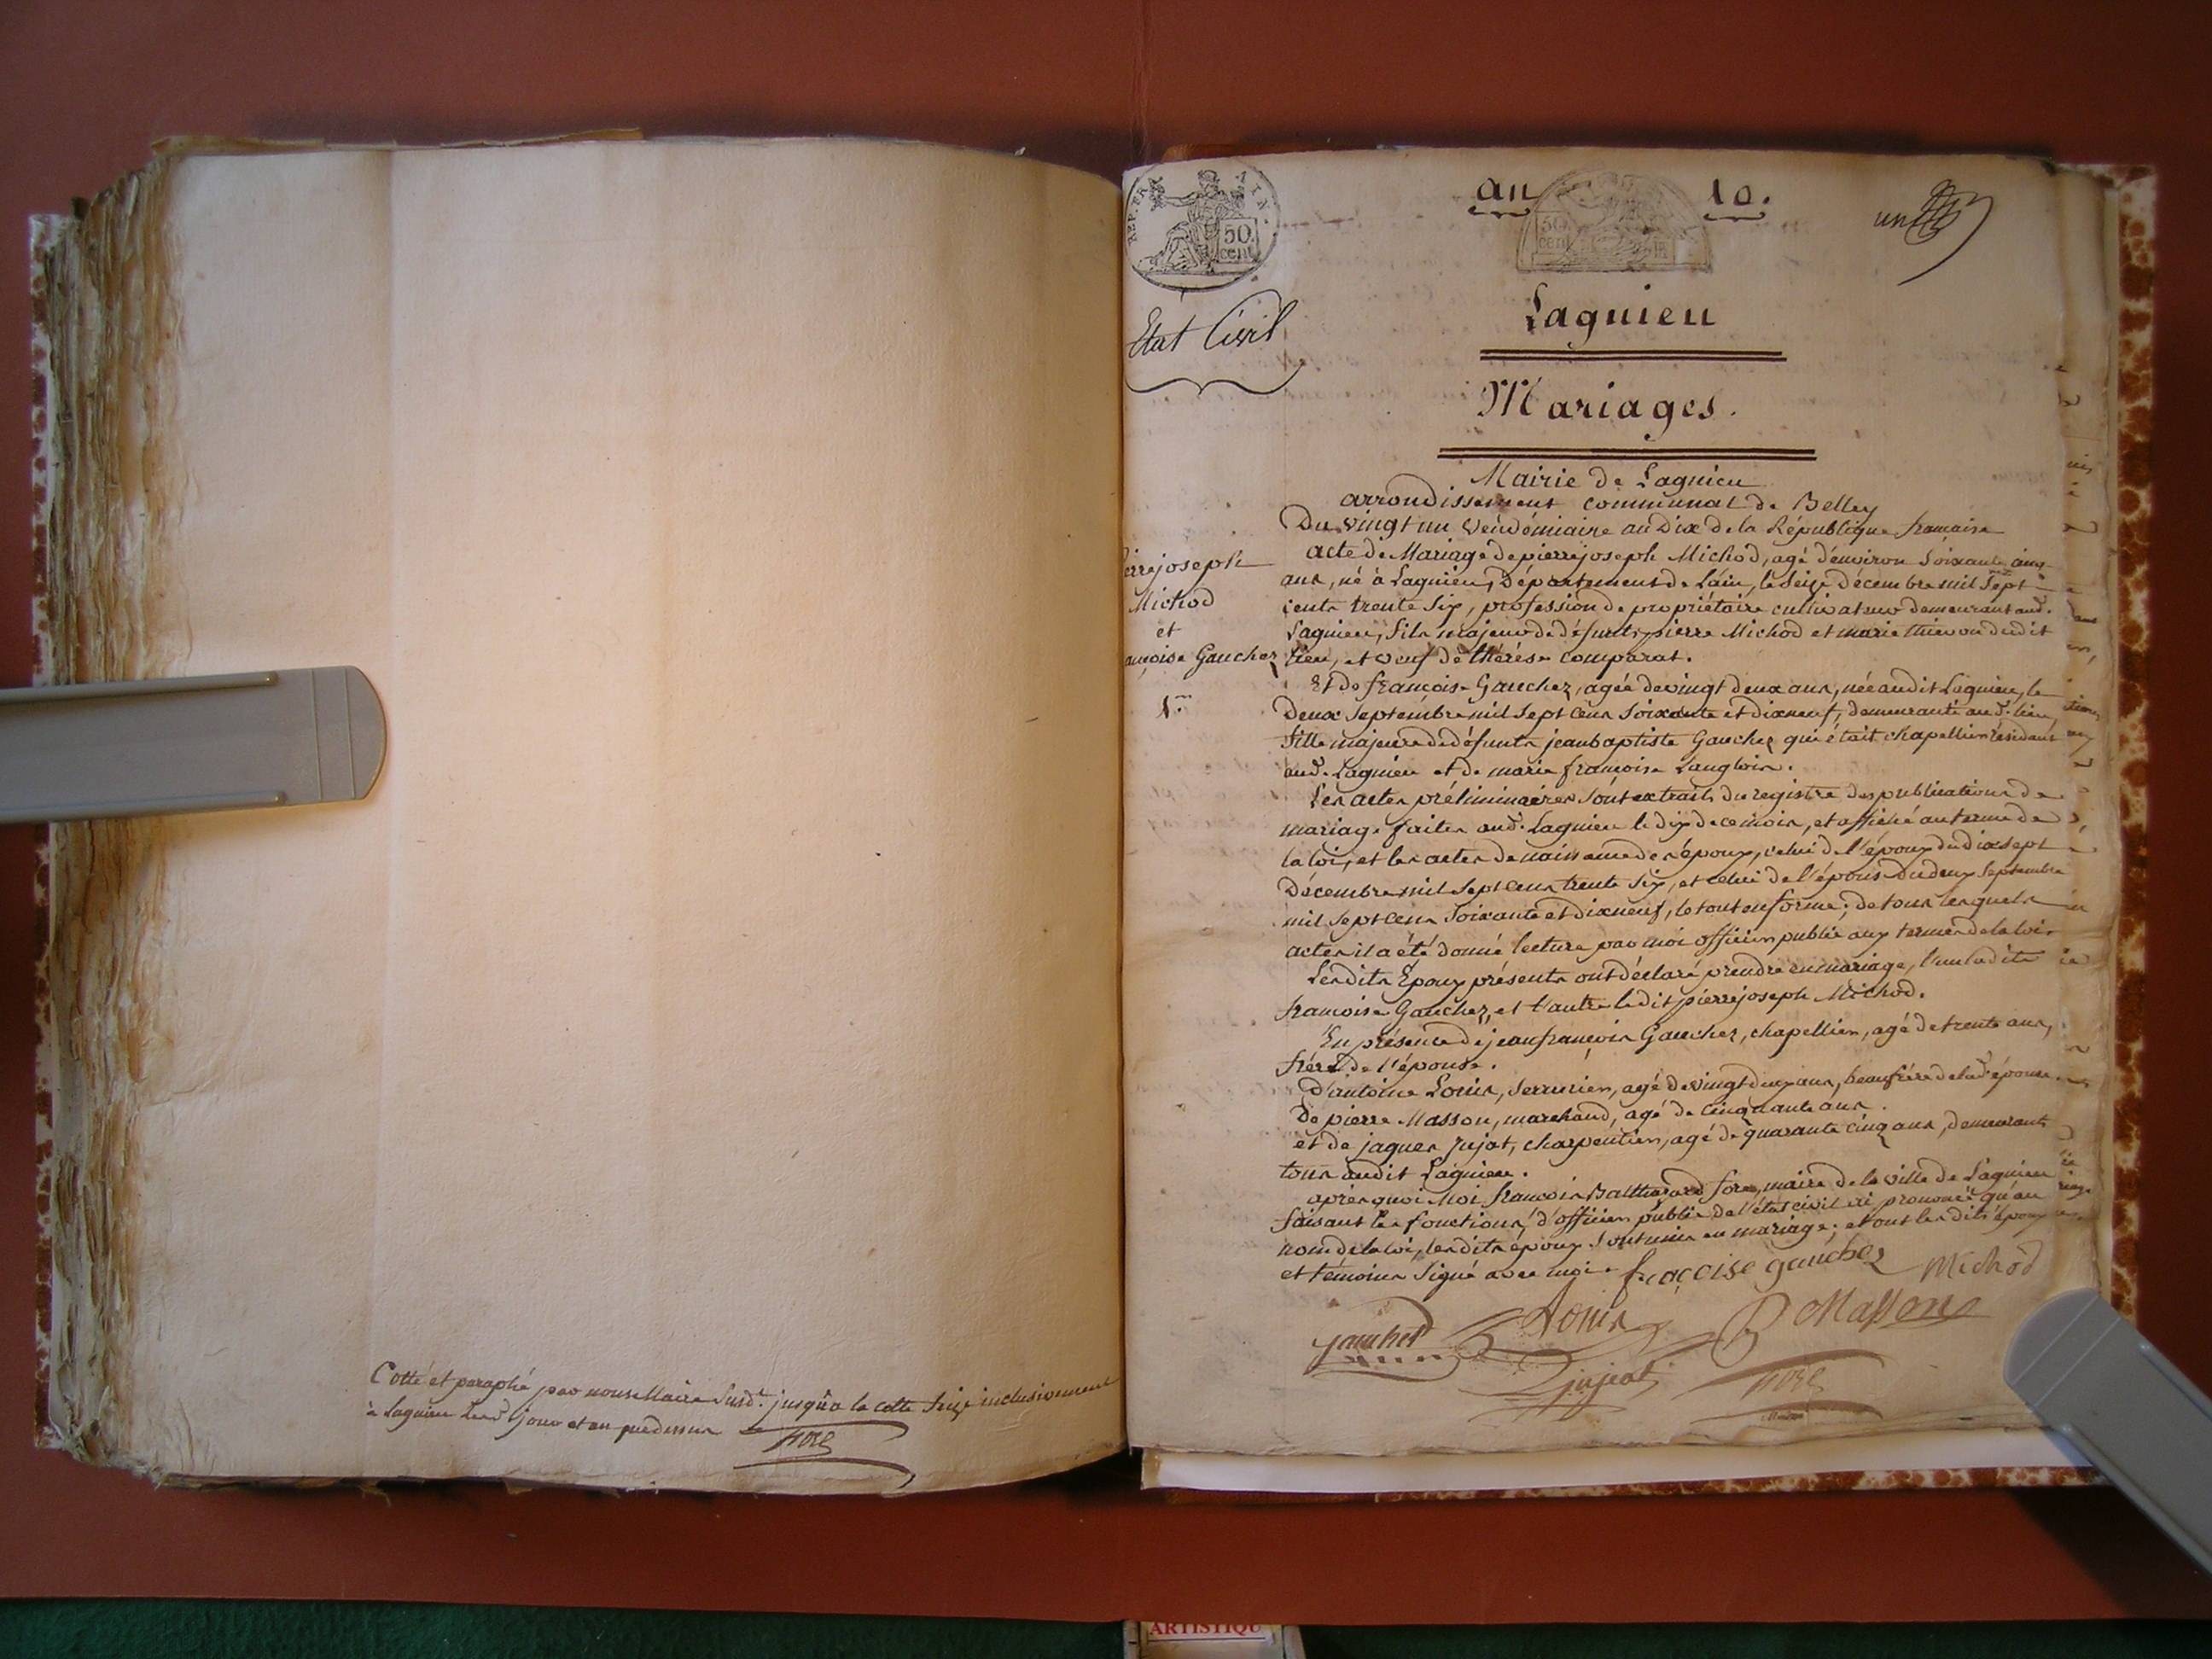 Cotté et paraphé par nous Maire susd.t jusqu'à la cotte seize inclusivement
à Lagnieu lesd. jour et an que dessus
REP. FRA
50
cent
an 10.
50
cen
un
Etat Civil
Lagnieu
Mariages.
Mairie de Lagnieu
arrondissement communal de Belley
Du vingt un Vendémiaire an Dix de la République française
ierre joseph
Michod
et
ançoise Gauchez
acte de Mariage de pierre joseph Michod, agé d'environ soixante cinq
ans, né à Lagnieu, Département de l'ain, le seize décembre mil sept
cents trente six, profession de propriétaire cultivateur demeurant aud.
Lagnieu, fils majeur de défunts pierre Michod et marie thievon dudit
lieu, et veuf de thérèse comparat.
Et de françoise Gauchez, agée de vingt deux ans, née audit Lagnieu, le
Deux septembre mil sept cens soixante et dixneuf, demeurante aud. lieu,
fille majeure de défunts jean baptiste Gauchez qui était chapellier résidant
aud. Lagnieu et de marie françoise Langlois.
Les actes préliminaires sont extraits du registre des publications de
mariage faites aud. Lagnieu le dix de ce mois, et affiché au terme de
la loi, et les actes de naissance des époux, celui de l'époux du dixsept
Décembre mil sept cens trente six, et celui de l'épouse du deux septembre
mil sept cens soixante et dixneuf, le tout en forme; de tous lesquels
actes il a été donné lecture par moi officier public aux termes de la loi.
Lesdits Epoux présents ont déclaré prendre en mariage, l'un ladite
françoise Gauchez, et l'autre ledit pierre joseph Michod.
En présence de jean françois Gauchez, chapellier, agé de trente ans,
frère de l'épouse.
D'antoine Louis, serrurier, agé de vingt deux ans, beaufrère de lad. épouse.
De pierre Masson, marchand, agé de cinquante ans.
et de jaques jujat, charpentier, agé de quarante cinq ans, demeurants
tous audit Lagnieu.
après quoi Moi françois Balthazard fore, maire de la ville de Lagnieu
faisant les fonctions d'officier public de l'état civil ai prononcé qu'au
nom de la loi, lesdits époux sont unis en mariage; et ont lesdits époux
et témoins signé avec moi. fraçoise gauchez Michod
gauchet Louis P Masson
jujat fore
ARTISTIQU